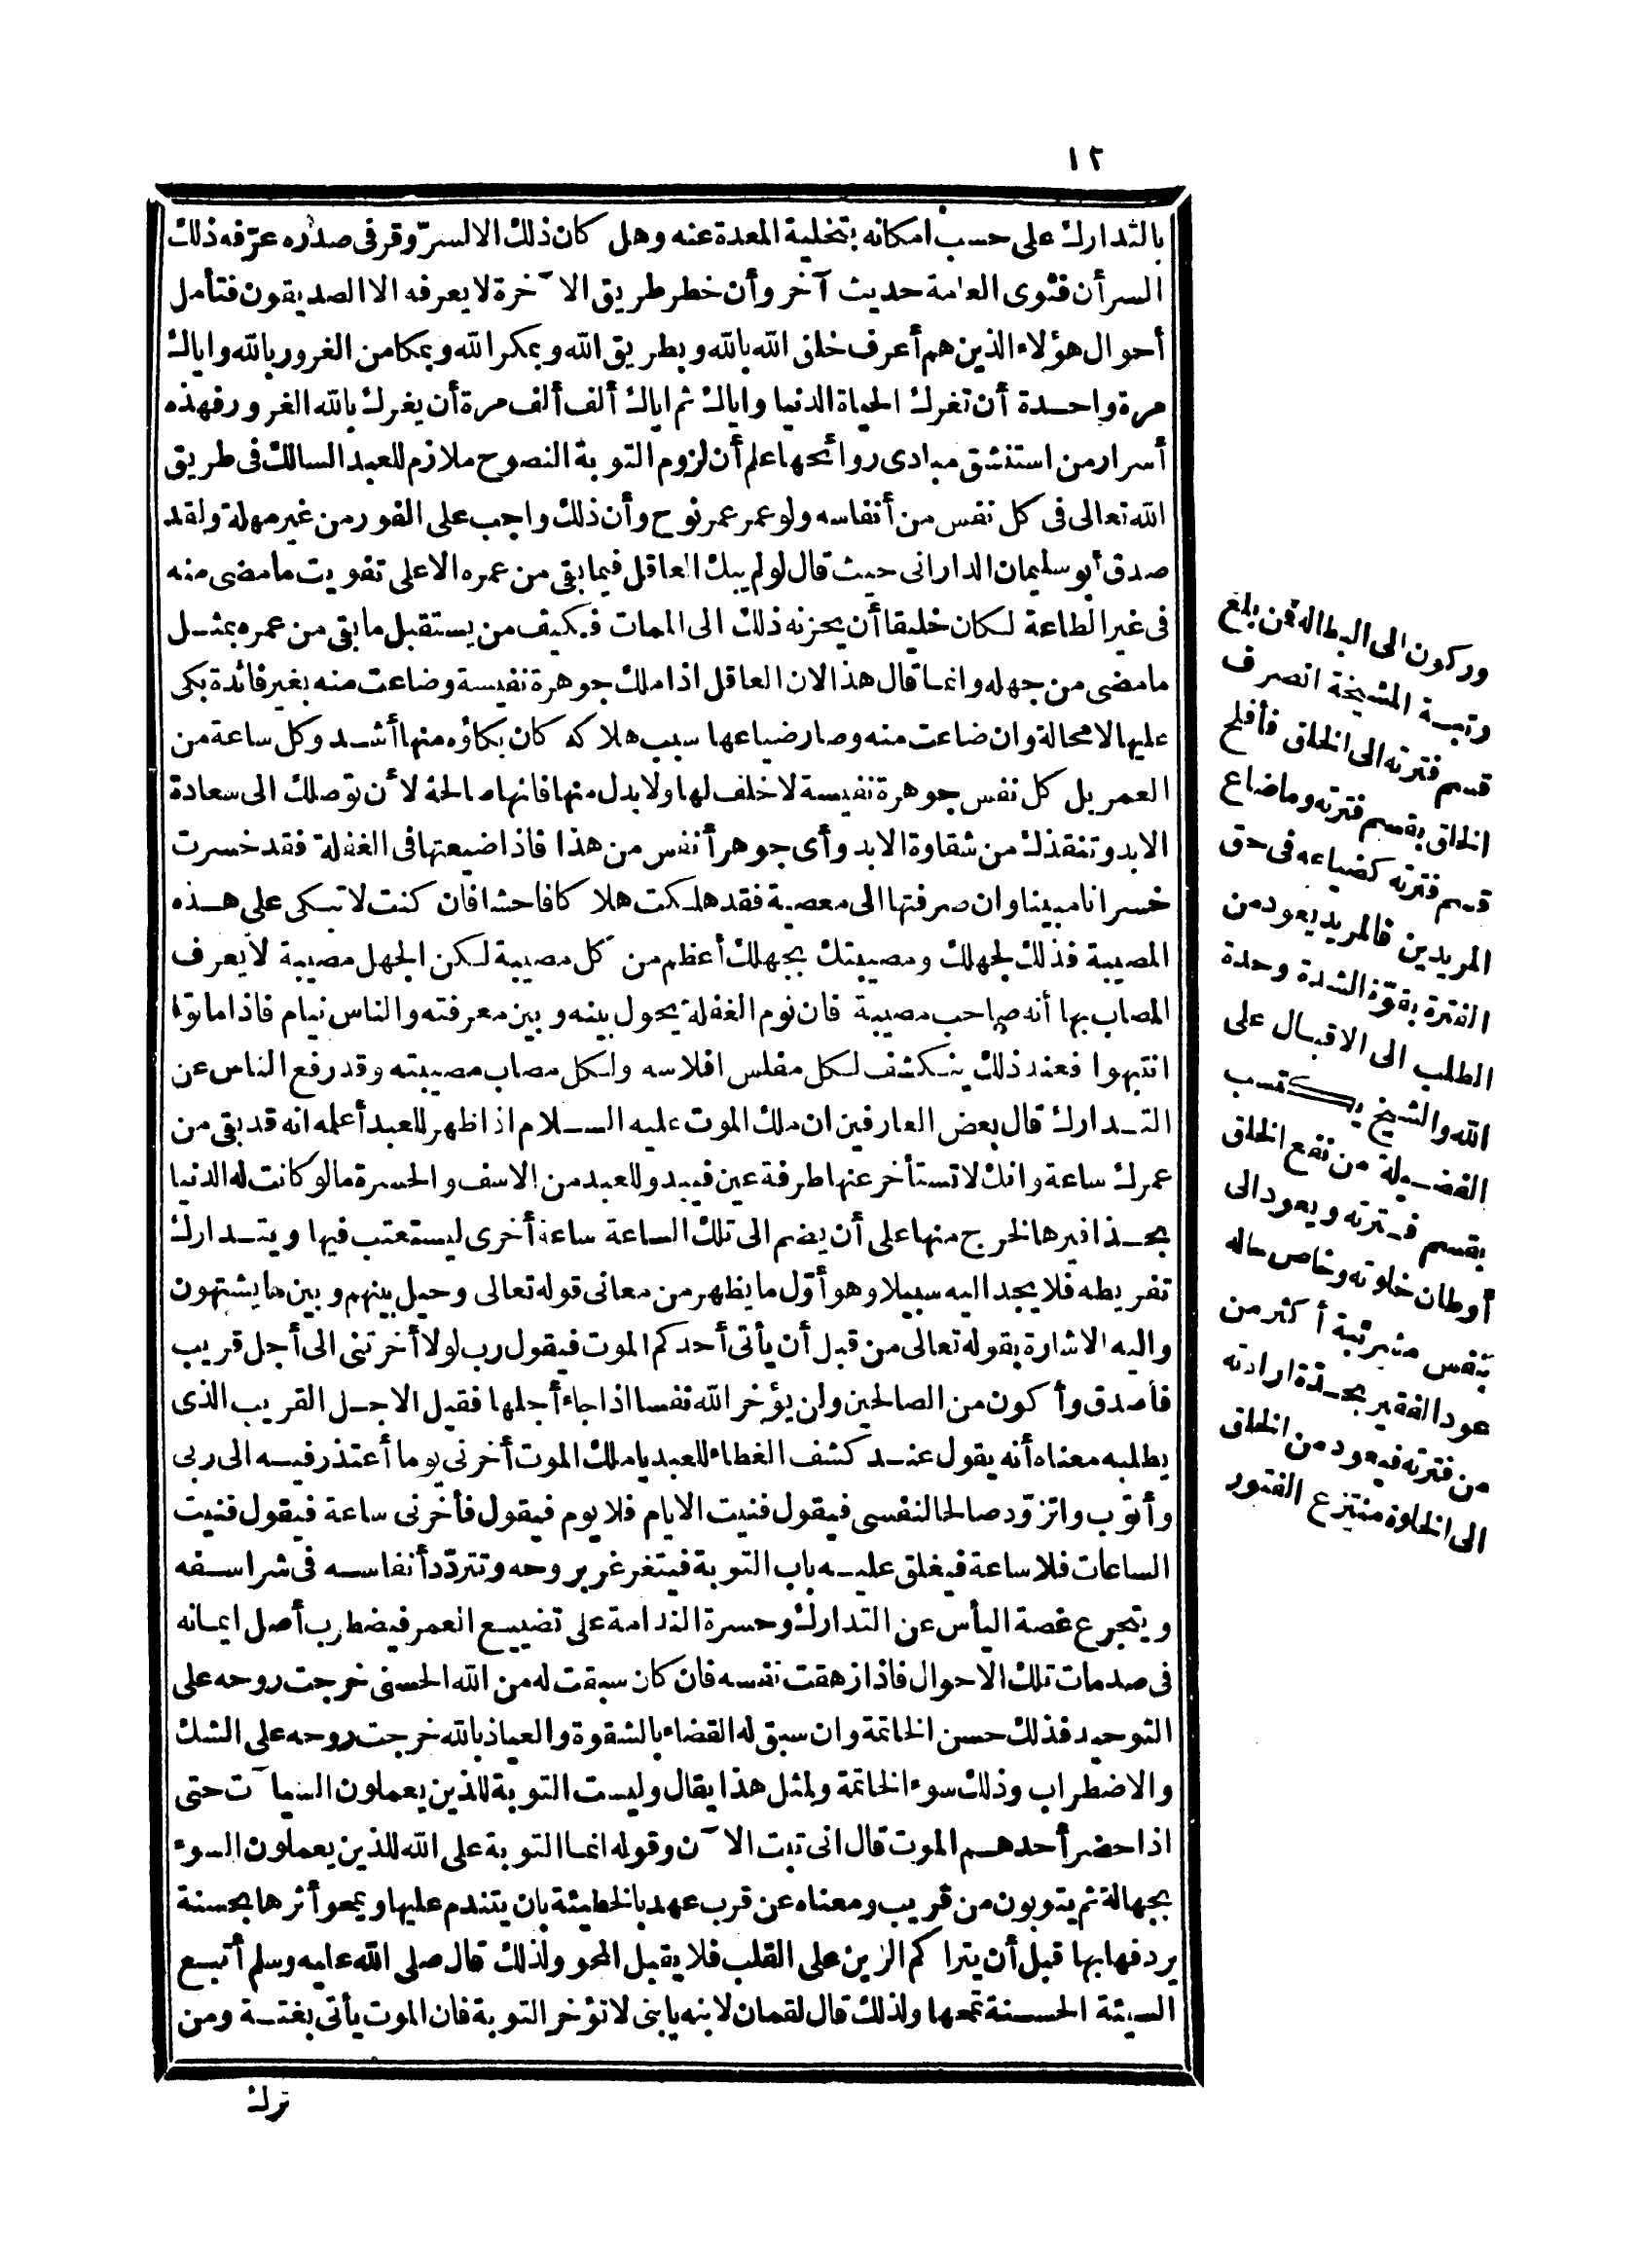 ١٢
بالتدارك على حسب امكانه بتخلية المعدة عنه وهل كان ذلك الالسرّ وقر فى صدره عرّفه ذلك
السر أن فتوى العامة حديث آخر وأن خطر طريق الآخرة لا يعرفه الا الصديقون فتأمل
أحوال هؤلاء الذين هم أعرف خلق الله بالله وبطريق الله وبمكر الله وبمكامن الغرور بالله واياك
مرة واحدة أن تغرك الحياة الدنيا واياك ثم اياك ألف ألف مرة أن يغرك بالله الغرور فهذه
أسرار من استنشق مبادى روائحها علم أن لزوم التوبة النصوح ملازم للعبد السالك فى طريق
الله تعالى فى كل نفس من أنفاسه ولو عمر عمر نوح وأن ذلك واجب على الفور من غير مهلة ولقد
صدق أبو سليمان الدارانى حيث قال لو لم يبك العاقل فيما بقى من عمره الا على تفويت ما مضى منه
فى غير الطاعة لكان خليقا أن يحزنه ذلك الى الممات فكيف من يستقبل ما بقى من عمره بمثل
ما مضى من جهله وانما قال هذا لان العاقل اذا ملك جوهرة نفيسة وضاعت منه بغير فائدة بكى
عليها لا محالة وان ضاعت منه وصار ضياعها سبب هلاكه كان بكاؤه منها أشد وكل ساعة من
العمر بل كل نفس جوهرة نفيسة لا خلف لها ولا بدل منها فانها صالحة لأن توصلك الى سعادة
الابد وتنقذك من شقاوة الابد وأى جوهر أنفس من هذا فاذا ضيعتها فى الغفلة فقد خسرت
خسرانا مبينا وان صرفتها الى معصية فقد هلكت هلاكا فاحشا فان كنت لا تبكى على هذه
المصيبة فذلك لجهلك ومصيبتك بجهلك أعظم من كل مصيبة لكن الجهل مصيبة لا يعرف
المصاب بها أنه صاحب مصيبة فان نوم الغفلة يحول بينه وبين معرفته والناس نيام فاذا ماتوا
انتبهوا فعند ذلك ينكشف لكل مفلس افلاسه ولكل مصاب مصيبته وقد رفع الناس عن
التدارك قال بعض العارفين ان ملك الموت عليه السلام اذا ظهر للعبد أعلمه انه قد بقى من
عمرك ساعة وانك لا تستأخر عنها طرفة عين فيبدو للعبد من الاسف والحسرة ما لو كانت له الدنيا
بحذافيرها لخرج منها على أن يضم الى تلك الساعة ساعة أخرى ليستعتب فيها ويتدارك
تفريطه فلا يجد اليه سبيلا وهو أوّل ما يظهر من معانى قوله تعالى وحيل بينهم وبين ما يشتهون
واليه الاشارة بقوله تعالى من قبل أن يأتى أحدكم الموت فيقول رب لولا أخرتنى الى أجل قريب
فأصدق وأكون من الصالحين ولن يؤخر الله نفسا اذا جاء أجلها فقيل الاجل القريب الذى
يطلبه معناه أنه يقول عند كشف الغطاء للعبد يا ملك الموت أخرنى يوما أعتذر فيه الى ربى
وأتوب واتزوّد صالحا لنفسى فيقول فنيت الايام فلا يوم فيقول فأخرنى ساعة فيقول فنيت
الساعات فلا ساعة فيغلق عليه باب التوبة فيتغرغر بروحه وتتردّد أنفاسه فى شراسفه
ويتجرع غصة اليأس عن التدارك وحسرة الندامة على تضييع العمر فيضطرب أصل ايمانه
فى صدمات تلك الاحوال فاذا زهقت نفسه فان كان سبقت له من الله الحسنى خرجت روحه على
التوحيد فذلك حسن الخاتمة وان سبق له القضاء بالشقوة والعياذ بالله خرجت روحه على الشك
والاضطراب وذلك سوء الخاتمة ولمثل هذا يقال وليست التوبة للذين يعملون السيآت حتى
اذا حضر أحدهم الموت قال انى تبت الآن وقوله انما التوبة على الله للذين يعملون السوء
بجهالة ثم يتوبون من قريب ومعناه عن قرب عهد بالخطيئة بان يتندم عليها ويمحو أثرها بحسنة
يردفها بها قبل أن يتراكم الرين على القلب فلا يقبل المحو ولذلك قال صلى الله عليه وسلم أتبع
السيئة الحسنة تمحها ولذلك قال لقمان لابنه يا بنى لا تؤخر التوبة فان الموت يأتى بغتة ومن
ترك
وركون الى البطالة فمن بلغ
رتبة المشيخة انصرف
قسم فترته الى الخلق فأفلح
الخلق بقسم فترته وما ضاع
قسم فترته كضياعه فى حق
المريدين فالمريد يعود من
الفترة بقوّة الشدة وحدة
الطلب الى الاقبال على
الله والشيخ يكتسب
الفضيلة من نفع الخلق
بقسم فترته ويعود الى
أوطان خلوته وخاص حاله
بنفس مشرئبة أكثر من
عود الفقير بحدّة ارادته
من فترته فيعود من الخلق
الى الخلوة منتزع الفتور